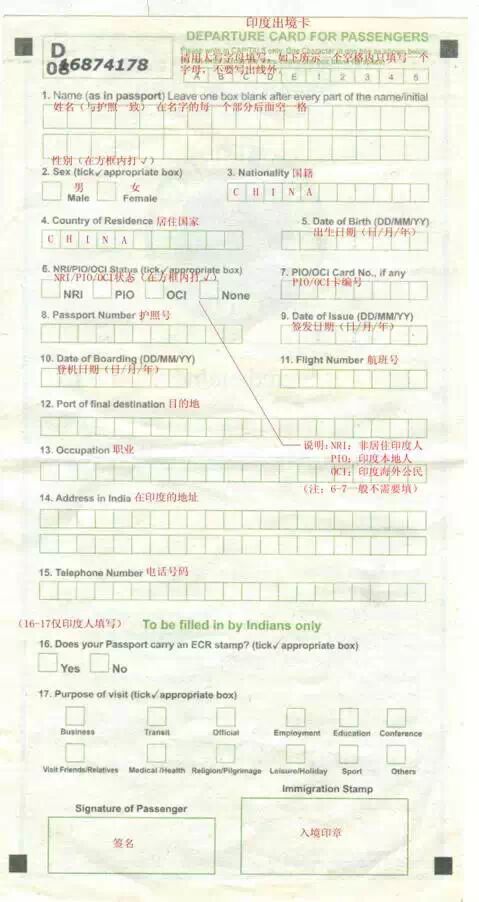 印度出境卡
DEPARTURE CARD FOR PASSENGERS
D
08
16874178
请用大写字母填写，如下所示一个空格内只填写一个
字母，不要写出线外。
A B C D E 1 2 3 4 5
1. Name (as in passport) Leave one box blank after every part of the name/initial
姓名（与护照一致）在名字的每一个部分后面空一格
性别（在方框内打✓）
2. Sex (tick✓ appropriate box)
3. Nationality 国籍
男 女
Male Female
C H I N A
4. Country of Residence 居住国家
5. Date of Birth (DD/MM/YY)
C H I N A
出生日期（日/月/年）
6. NRI/PIO/OCI Status (tick✓appropriate box)
NRI/PIO/OCI状态（在方框内打✓）
7. PIO/OCI Card No., if any
PIO/OCI卡编号
NRI PIO OCI None
8. Passport Number 护照号
9. Date of Issue (DD/MM/YY)
签发日期（日/月/年）
10. Date of Boarding (DD/MM/YY)
登机日期（日/月/年）
11. Flight Number 航班号
12. Port of final destination 目的地
13. Occupation 职业
说明:NRI: 非居住印度人
PIO: 印度本地人
OCI: 印度海外公民
（注：6-7一般不需要填）
14. Address in India 在印度的地址
15. Telephone Number 电话号码
（16-17仅印度人填写）
To be filled in by Indians only
16. Does your Passport carry an ECR stamp? (tick✓appropriate box)
Yes No
17. Purpose of visit (tick✓appropriate box)
Business Transit Official Employment Education Conference
Visit Friends/Relatives Medical /Health Religion/Pilgrimage Leisure/Holiday Sport Others
Immigration Stamp
Signature of Passenger
签名
入境印章